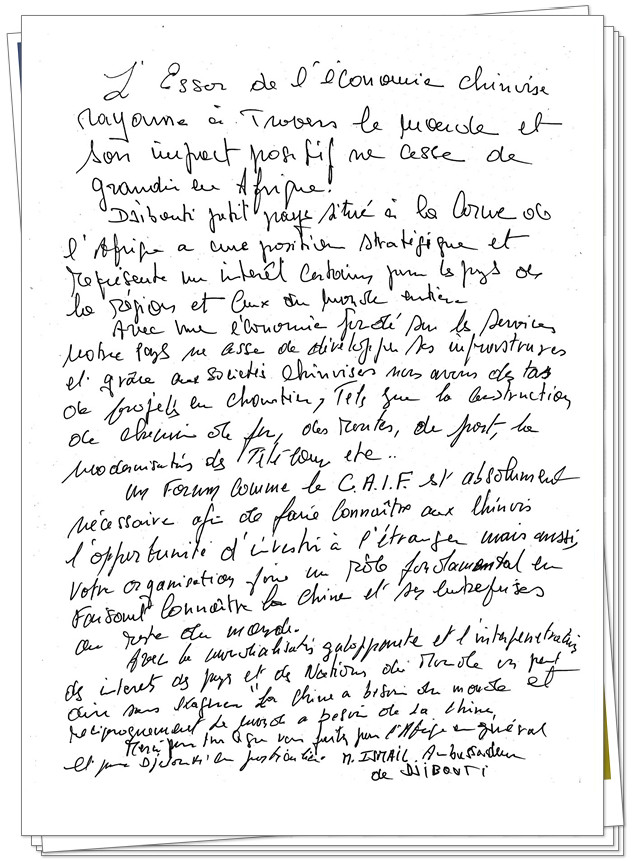 L'Essor de l'économie chinoise
rayonne à Travers le monde et
son impact positif ne cesse de
grandir en Afrique.
Djibouti petit pays situé à la Corne de
l'Afrique a une position stratégique et
représente un intérêt certains pour les pays de
la région et ceux du monde entier.
Avec une économie fondé sur les services
notre pays ne cesse de développer ses infrastructures
et grâce aux sociétés chinoises nous avons des tas
de projets en chantier, Tels que la construction
de chemin de fer, des routes, de port, la
modernisation des Télécom etc..
un Forum comme le C.A.I.F. est absolument
nécessaire afin de faire connaître aux chinois
l'opportunité d'investir à l'étranger mais aussi,
votre organisation joue un rôle fondamental en
faisant connaître la Chine et ses entreprises
au reste du monde.
Avec la mondialisation galoppante et l'interpénétration
des interet des pays et des Nations du Monde on peut
dire sans exagérer "la Chine a besoin du monde et
réciproquement le monde a besoin de la Chine,
Merci pour tout ce que vous faites pour l'Afrique en général
et pour Djibouti en particulier. M. ISMAIL Ambassadeur
de DJIBOUTI